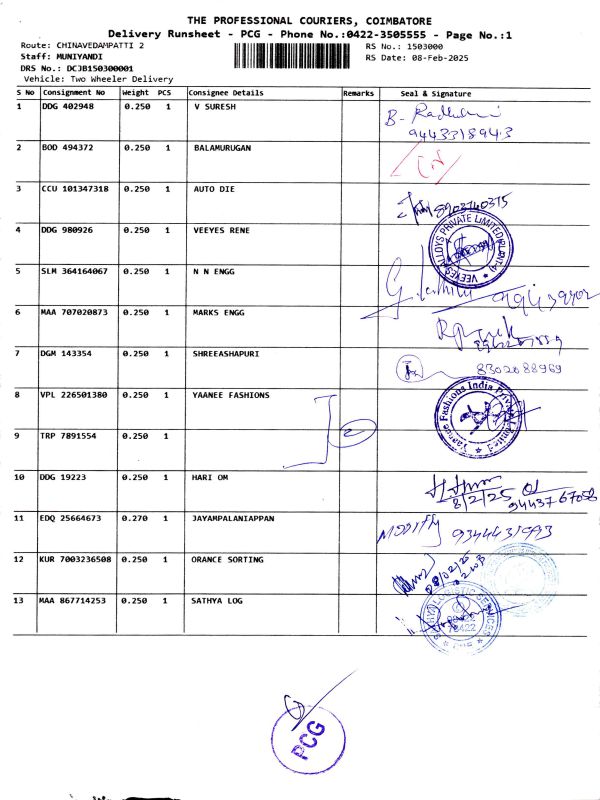 THE PROFESSIONAL COURIERS, COIMBATORE
Delivery Runsheet - PCG - Phone No.:0422-3505555 - Page No.:1
Route: CHINAVEDAMPATTI 2 RS No.: 1503000
Staff: MUNIYANDI RS Date: 08-Feb-2025
DRS No.: DCJB150300001
Vehicle: Two Wheeler Delivery
S No Consignment No Weight PCS Consignee Details Remarks Seal & Signature
1 DDG 402948 0.250 1 V SURESH B-
9443318943
2 BOD 494372 0.250 1 BALAMURUGAN
3 CCU 101347318 0.250 1 AUTO DIE 8903740375
4 DDG 980926 0.250 1 VEEYES RENE VEEYES ALLOYS PRIVATE LIMITED
5 SLM 364164067 0.250 1 N N ENGG
6 MAA 707020873 0.250 1 MARKS ENGG
7 DGM 143354 0.250 1 SHREEASHAPURI 8302088969
8 VPL 226501380 0.250 1 YAANEE FASHIONS Fashions India Private Limited
9 TRP 7891554 0.250 1 2
10 DDG 19223 0.250 1 HARI OM
8/2/25
11 EDQ 25664673 0.270 1 JAYAMPALANIAPPAN
12 KUR 7003236508 0.250 1 ORANCE SORTING 08/02/25
13 MAA 867714253 0.250 1 SATHYA LOG
PCG